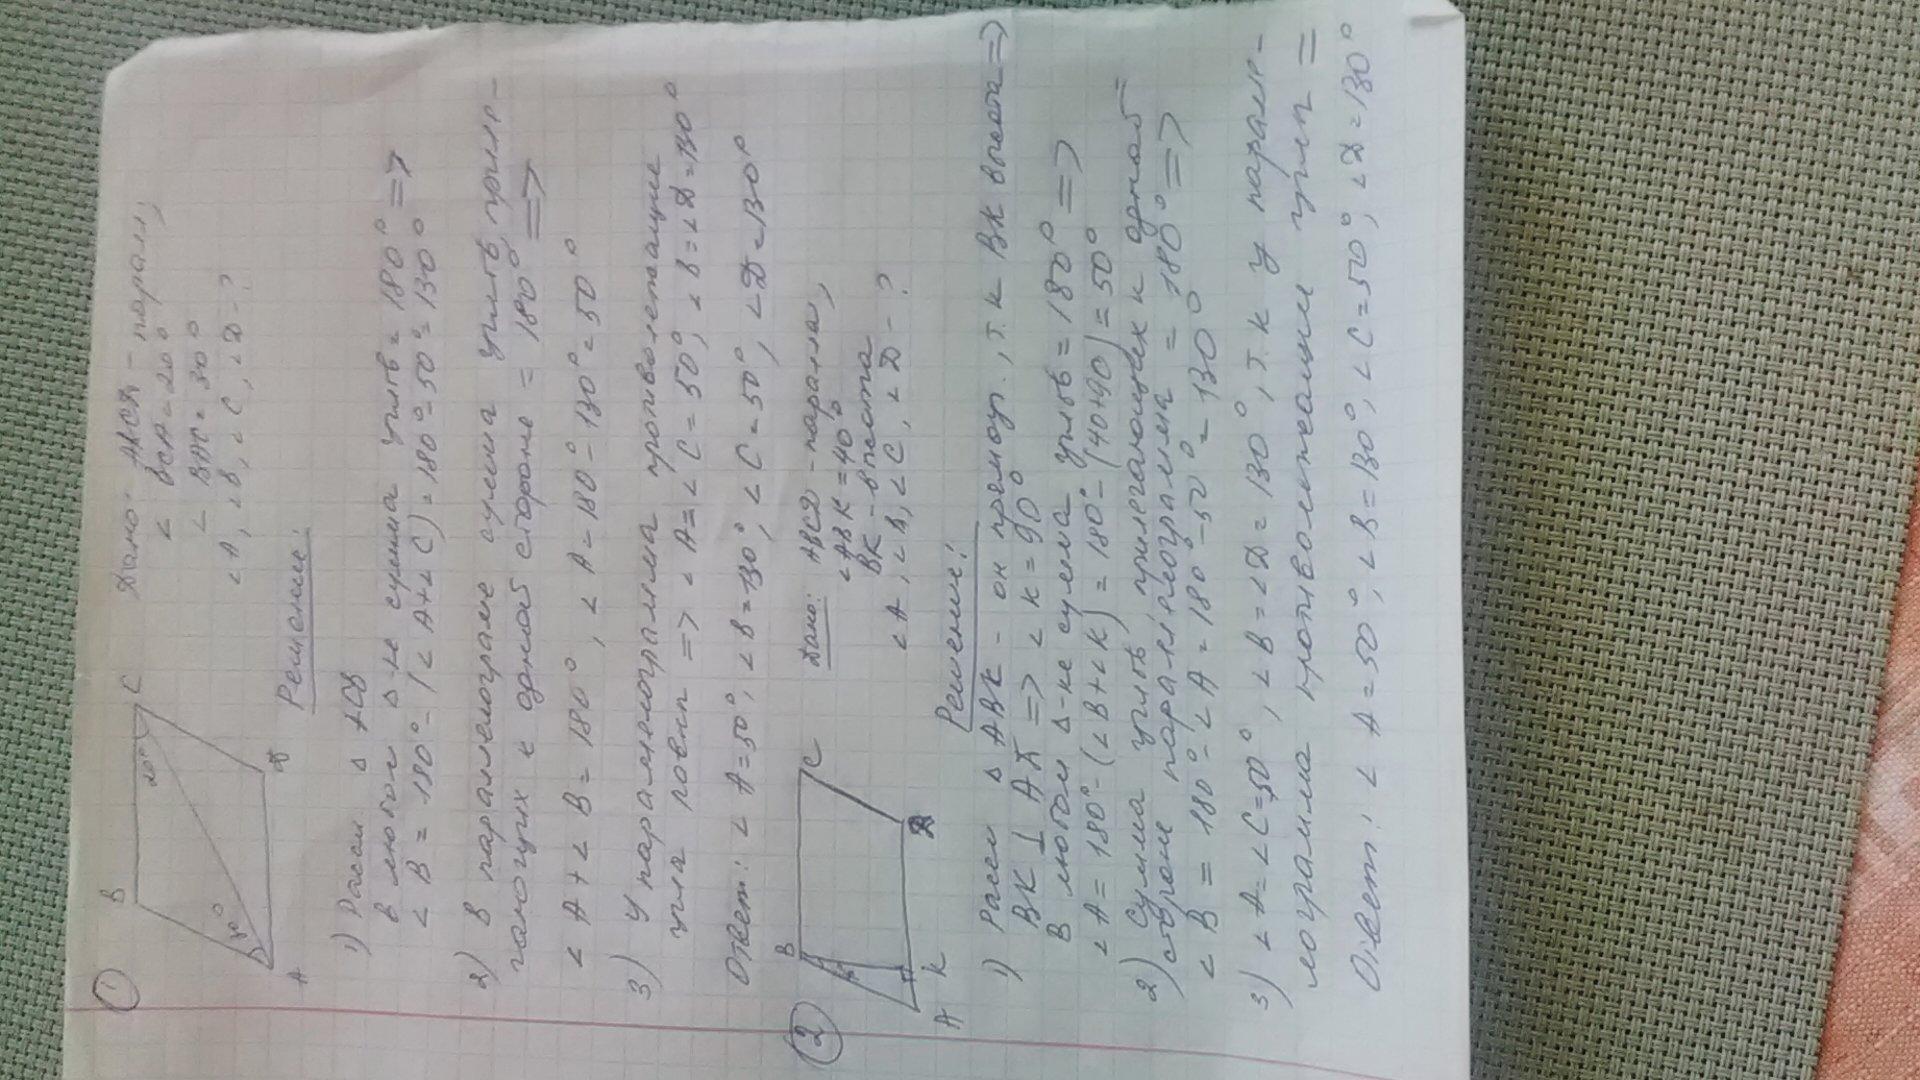 ①
B
C
20°
30°
A
D
Дано: ABCD - парал;
< BCA = 20°
< BAC = 30°
< A, < B, < C, < D - ?
Решение:
1) Рассм Δ ACB
В любом Δ-ке сумма углов = 180° =>
< B = 180° - (< A + < C) = 180° - 50° = 130°
2) В параллелограме сумма углов, прилегающих к одной стороне = 180° =>
< A + < B = 180°, < A = 180° - 130° = 50°
3) У параллелограмма противолежащие
углы равны => < A = < C = 50°, < B = < D = 130°
Ответ: < A = 50°, < B = 130°, < C = 50°, < D = 130°
②
B
C
A
K
D
Дано: ABCD - паралл,
< ABK = 40°
BK - высота
< A, < B, < C, < D - ?
Решение:
1) Рассм Δ ABK - он прямоуг., т.к BK высота =>
BK ⊥ AD => < K = 90°
В любом Δ-ке сумма углов = 180° =>
< A = 180° - (< B + < K) = 180° - (40+90) = 50°
2) Сумма углов, прилегающих к одной
стороне параллелограмма = 180° =>
< B = 180° - < A = 180° - 50° = 130°
3) < A = < C = 50°, < B = < D = 130°, т.к у паралле-
лограмма противолежащие углы =
Ответ: < A = 50°, < B = 130°, < C = 50°, < D = 130°